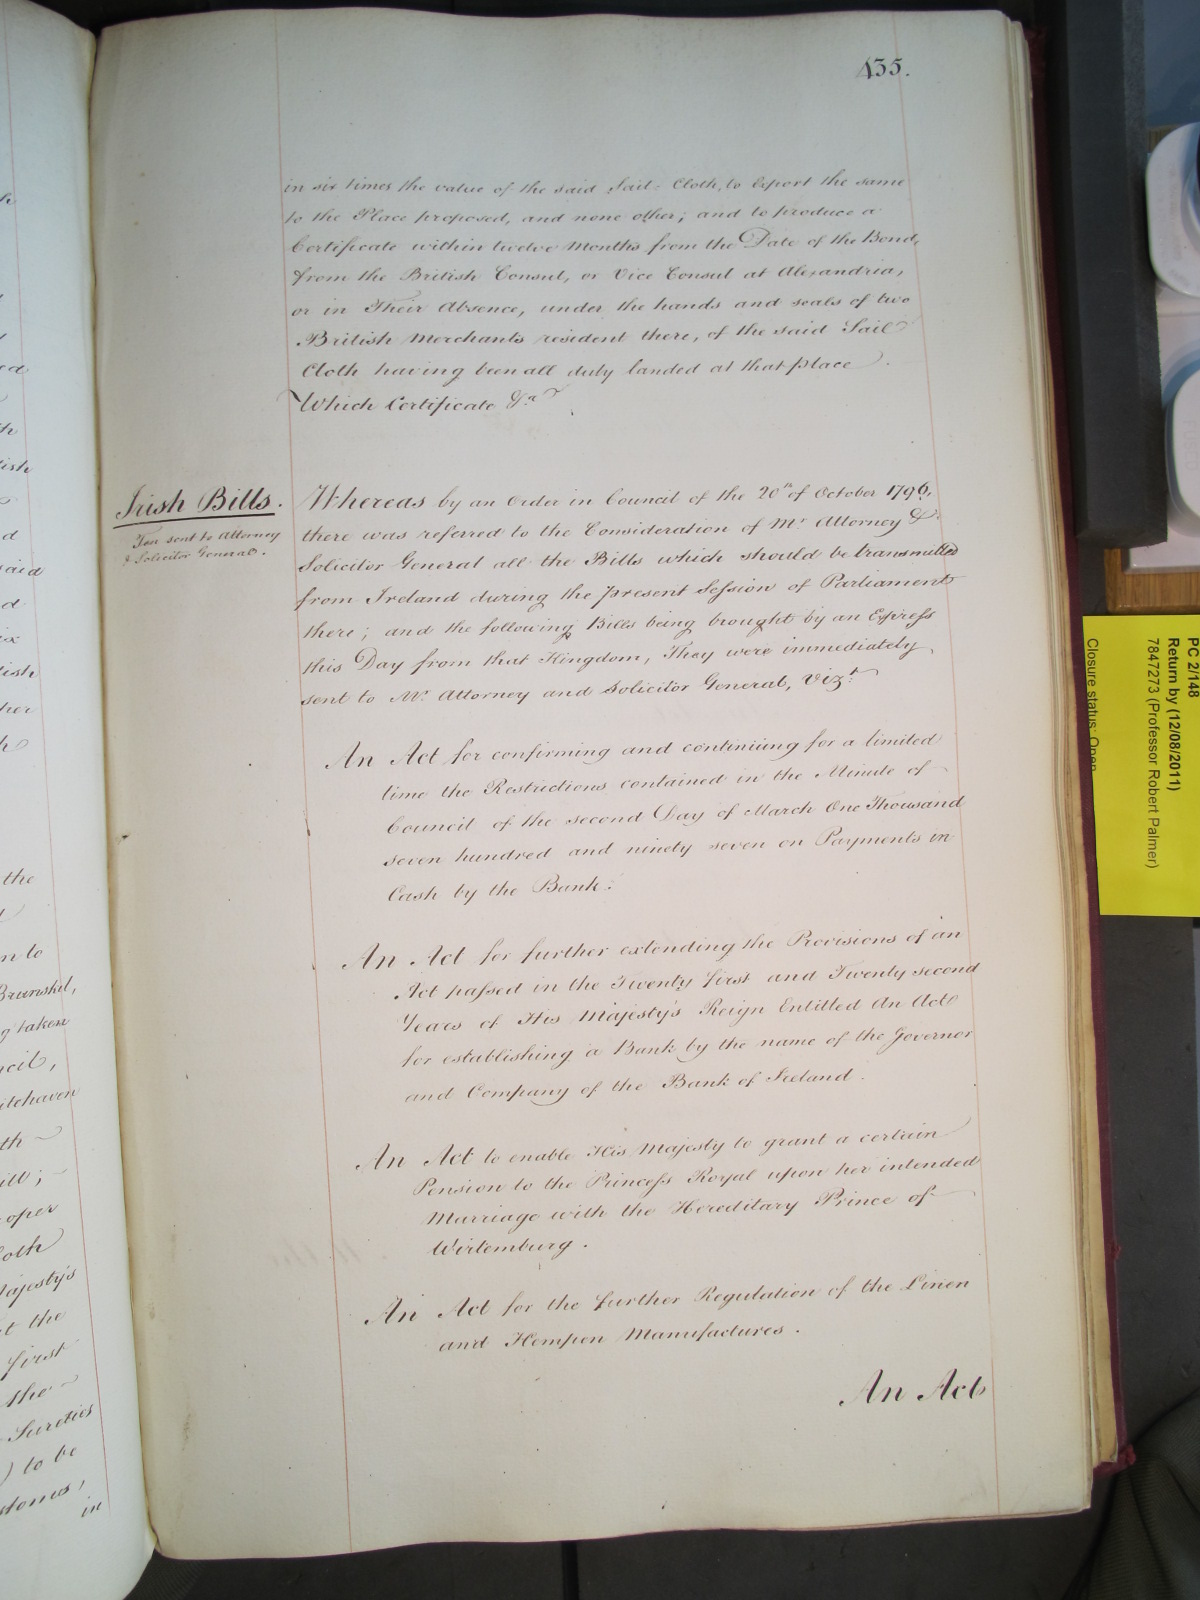 435.
in six times the value of the said Sail-Cloth, to Export the same
to the Place proposed, and none other; and to produce a
Certificate within twelve Months from the Date of the Bond,
from the British Consul, or Vice Consul at Alexandria,
or in Their Absence, under the hands and seals of two
British Merchants resident there, of the said Sail
Cloth having been all duly landed at that place.
Which Certificate &ca
Irish Bills.
Ten sent to Attorney
& Solicitor General.
Whereas by an Order in Council of the 20th of October 1796,
there was referred to the Consideration of Mr Attorney &
Solicitor General all the Bills which should be transmitted
from Ireland during the present Session of Parliament
there; and the following Bills being brought by an Express
this Day from that Kingdom, They were immediately
sent to Mr Attorney and Solicitor General, Vizt
An Act for confirming and continuing for a limited
time the Restrictions contained in the Minute of
Council of the second Day of March One Thousand
seven hundred and ninety seven on Payments in
Cash by the Bank.
An Act for further extending the Provisions of an
Act passed in the Twenty first and Twenty second
Years of His Majesty's Reign Entitled An Act
for establishing a Bank by the name of the Governor
and Company of the Bank of Ireland.
An Act to enable His Majesty to grant a certain
Pension to the Princess Royal upon her intended
Marriage with the Hereditary Prince of
Wirtemburg.
An Act for the further Regulation of the Linen
and Hempen Manufactures.
An Act
the
Brunskil,
taken
Majesty's
the
first
the
Sureties
to be
in
PC 2/148
Return by (12/08/2011)
7847273 (Professor Robert Palmer)
Closure status: Open